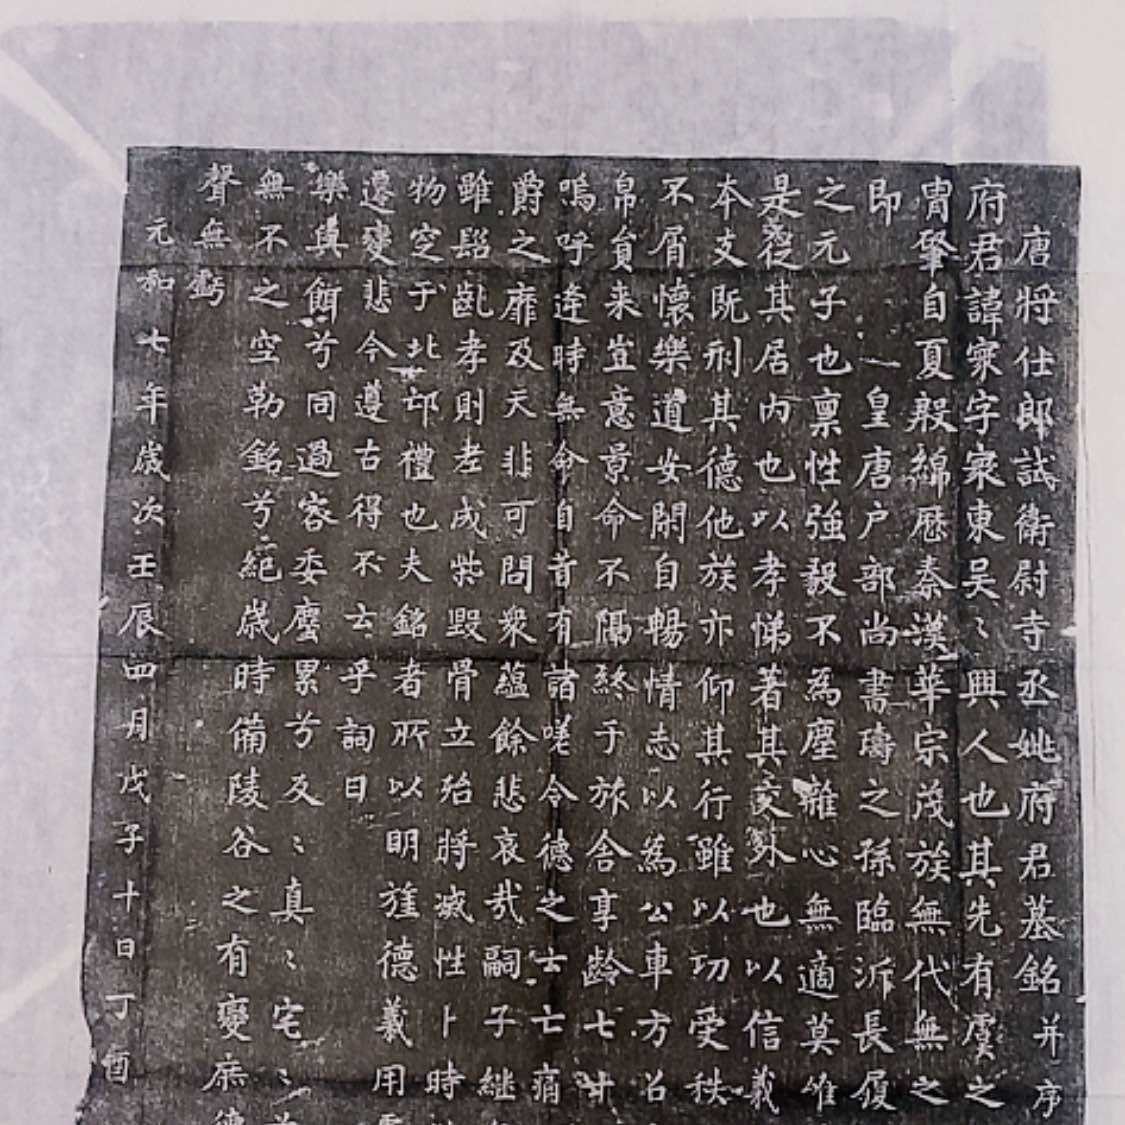 唐將仕郎試衛尉寺丞姚府君墓銘并序
府君諱寀字寀東吴〻興人也其先有虞之
胄肇自夏殷綿歷秦漢華宗茂族無代無之
即一皇唐户部尚書璹之孫臨泝長履
之元子也禀性強毅不為塵雜心無適莫唯
是從其居内也以孝悌著其交游也以信義
本支既刑其德他族亦仰其行雖以功受秩
不屑懷樂道安閑自暢情志以為公車方召
帛賁来豈意景命不隔終于旅舍享齡七十
嗚呼逢時無命自昔有諸嗟令德之士亡痛
爵之靡及天非可問衆蘊餘悲哀哉嗣子継
雖髫齔孝則老成柴毀骨立殆將滅性卜時
物窆于北邙禮也夫銘者所以明旌德義用
遷變悲今遵古得不去乎詞曰
樂與餌兮同過客委塵累兮反〻真〻宅〻
無不之空勒銘兮紀歲時俻陵谷之有變庶德
聲無虧
元和七年歲次壬辰四月戊子十日丁酉